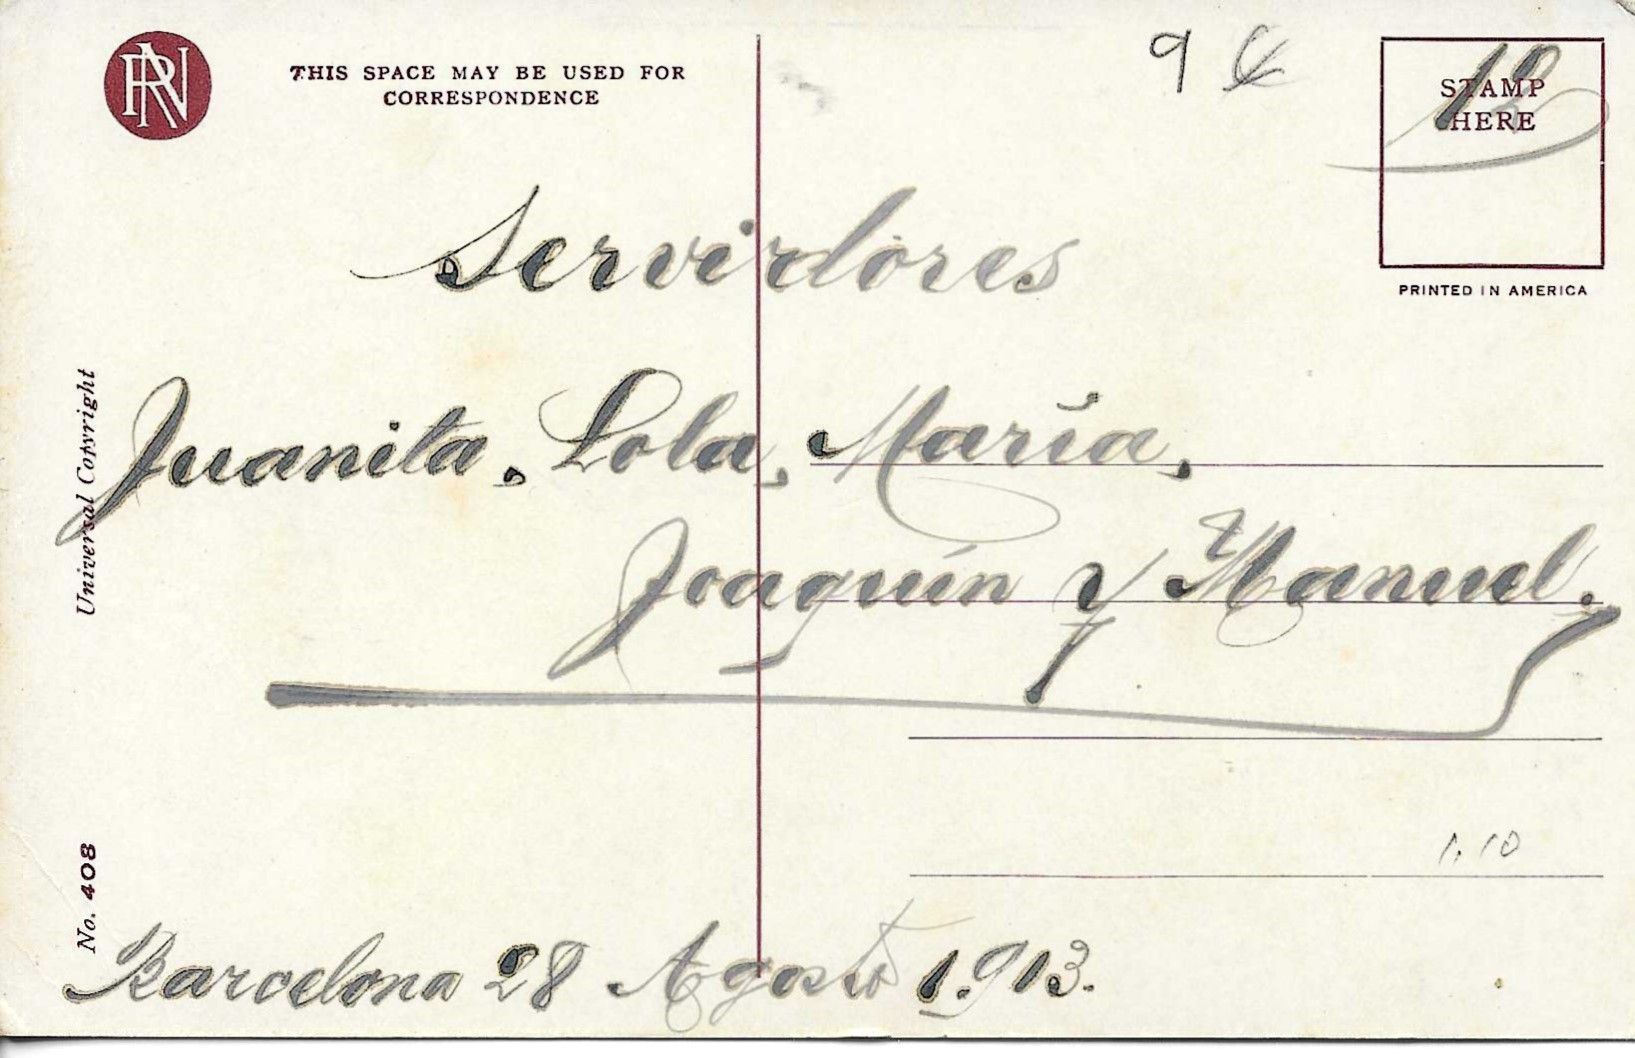 RN
THIS SPACE MAY BE USED FOR
CORRESPONDENCE
9
12
STAMP
HERE
PRINTED IN AMERICA
Servidores
Juanita, Lola, María,
Joaquín y Manuel.
Universal Copyright
No. 408
1.10
Barcelona 28 Agosto 1.913.